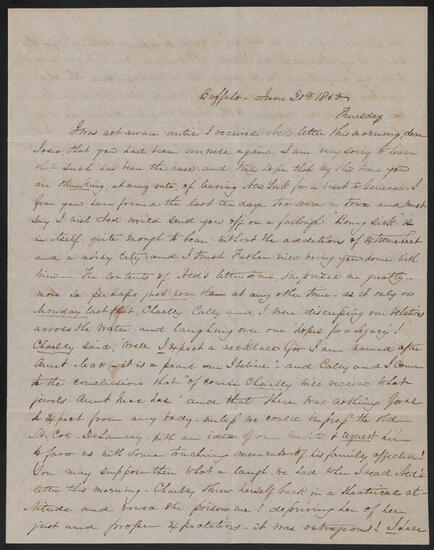 Buffalo - June 30th 1853
Thursday
I was not aware until I received Ned's letter this morning, dear
Josie that you had been unwell again. I am very sorry to learn
that such has been the case and truly hope that by this time you
are thinking, at any rate, of leaving New York for a visit to Geneva. I
fear you have found the last ten days too warm in town and must
say I wish Ned would send you off on a furlough. "Being sick" is
in itself, quite enough to bear, without the additions of extreme heat
and a noisy city, and I trust Father will bring you home with
him - The contents of Ned's letter to me, surprised me greatly -
more so perhaps just now than at any other time - as it only on
Monday last that Charley, Cally and I were discussing our relatives
across the water and laughing over our hopes for a legacy!
Charley said, "Well I expect a necklace for I am named after
Aunt Mac - it is a pearl one I believe" - and Cally and I came
to the conclusions that "of course Charley will receive what
jewels Aunt Mac has" and that there was nothing for us
to expect from any body - unless we could the old
De Lancey with an idea of our and request him
to favor us with some touching memento of his family affection!
You may suppose then what a laugh we had when I read Ned's
letter this morning - Charley threw herself back in a theatrical at-
titude and vowed she poison me! depriving her of her
just and proper expectations - it was outrageous! I have